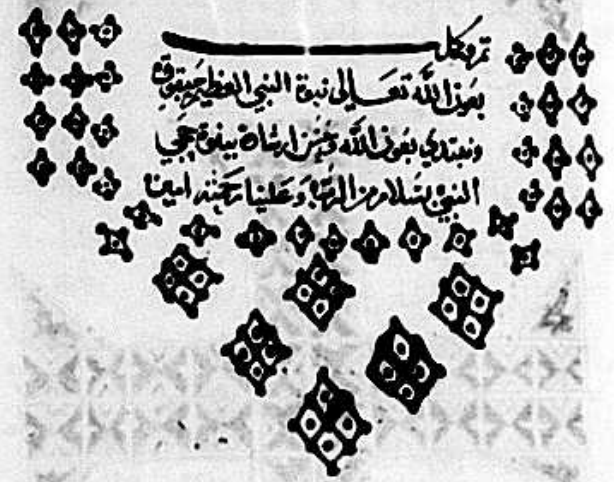 تم وكمل
بعون الله تعالى نبوة النبي العظيم حبقوق
ونبتدي بعون الله وحسن ارشاده بنبوة حجي
النبي بسلام من الرب وعلينا رحمته امين